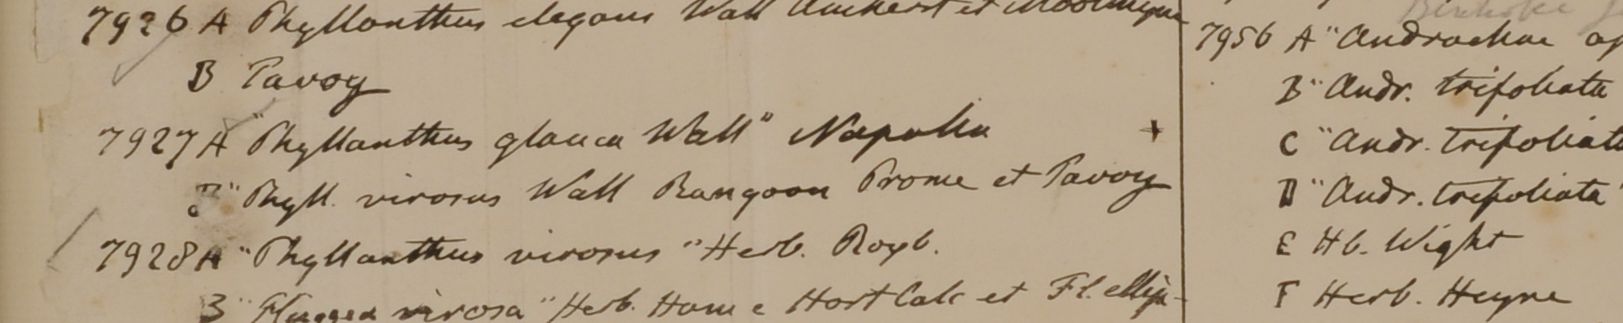 7926 A Phyllanthus elegans Wall Amherst et
B Tavoy
7927 A "Phyllanthus glauca Wall" Napalia +
B "Phyll. virosus Wall Rangoon Prome et Tavoy
7928 A "Phyllanthus virosus" Herb. Roxb.
B "Fluggea virosa" Herb. Ham e Hort Calc et Fl. ellip-
7956 A "Andrachne
B "Andr. trifoliata
C "Andr. trifoliata
D "Andr. trifoliata
E Hb. Wight
F Herb. Heyne